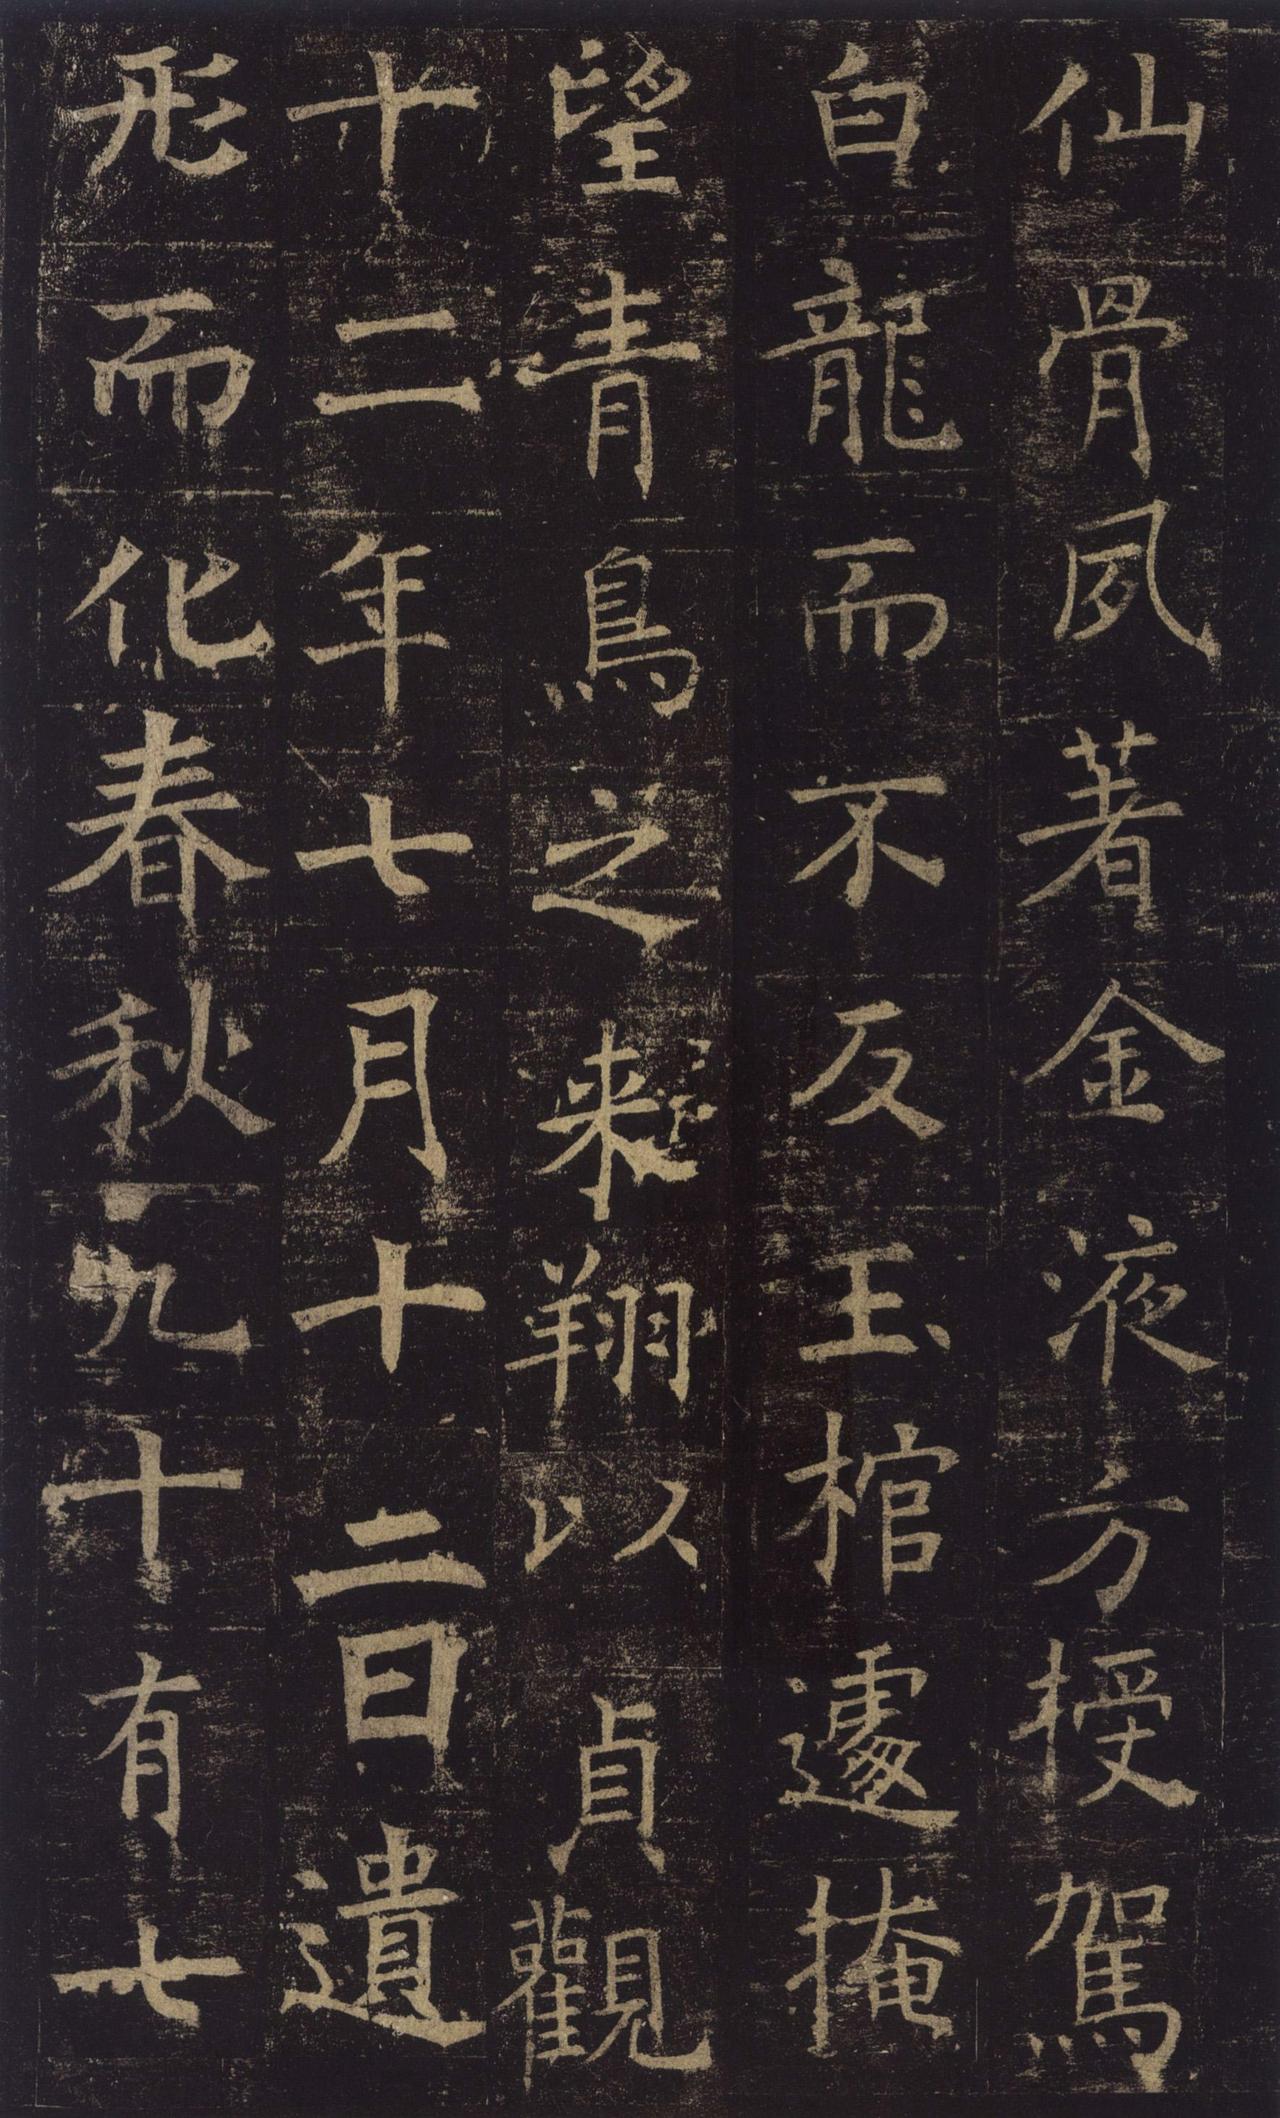 仙骨夙著金液方授駕
白龍而不反玉棺遽掩
望青鳥之来翔以貞觀
十二年七月十二日遺
形而化春秋九十有七